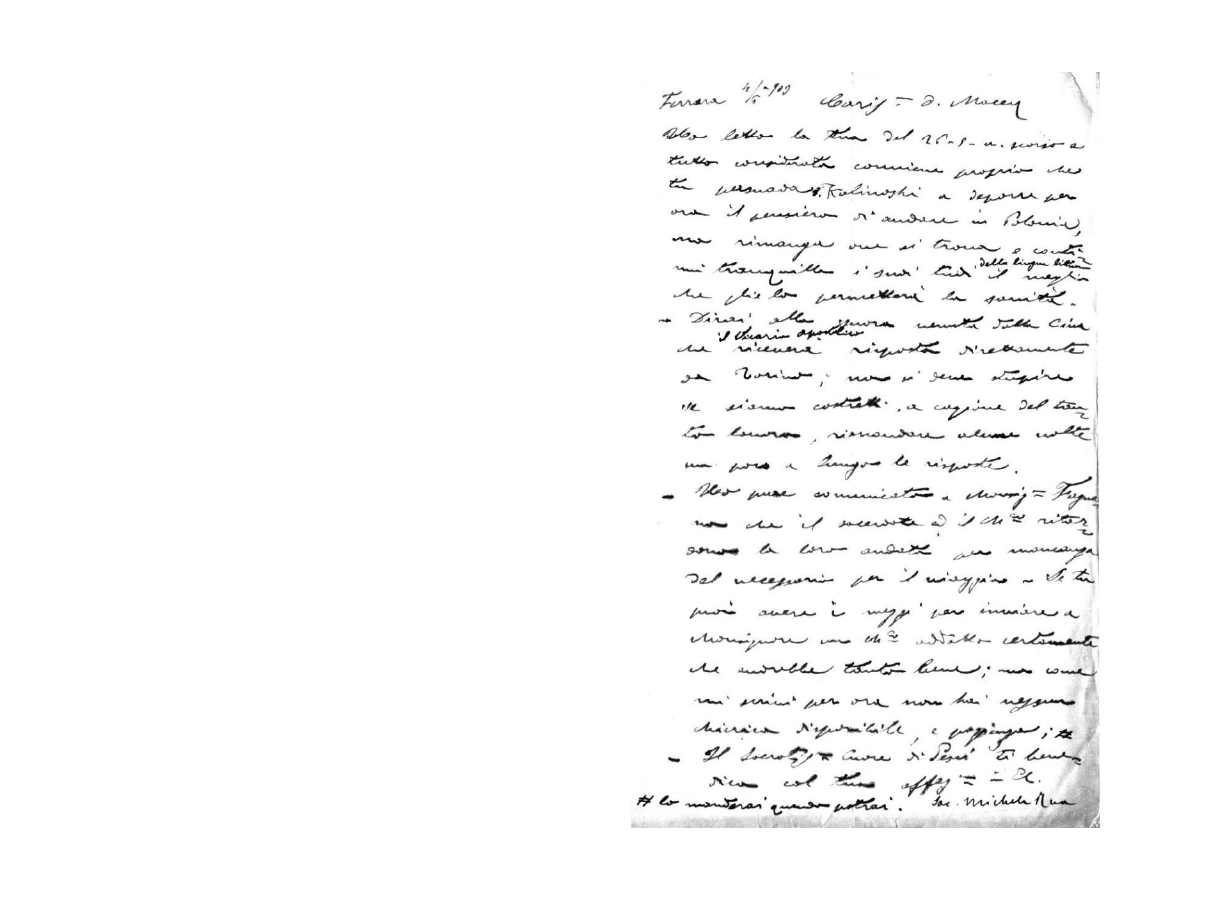 Ferrara 4/6-909 Cariss = D. Macey
Ho letto la tua del 26-5- u. scorso e
tutto considerato conviene proprio che
tu persuada D. Kalinoski a deporre per
ora il pensiero di andare in Polonia,
ma rimanga ove si trova e conti=
nui tranquillo i suoi studi della lingua il meglio
che glie lo permetterà la sanità.
- Dirai alla venuta dalla Cina
il Vicario apostlico
che riceverà risposta direttamente
da Torino; non si deve stupire
se siamo costretti, a cagione del tan=
to lavoro, rimandare alcune volte
un poco a lungo le risposte.
- Ho pure comunicato a Monsig = Fagna=
no che il sacerdote ed il Ch co ritar=
dono la loro andata per mancanza
del necessario per il viaggio - Se tu
puoi avere i mezzi per inviare a
Monsignore un Ch co addetto certamente
che andrebbe tanto bene; ma come
mi scrivi per ora non hai nessun
chierico disponibile, e pazienza; #
- Il Sacratiss = Cuore di Gesù ti bene=
dica col tuo affez = in C.
# lo manderai quando potrai. Sac. Michele Rua